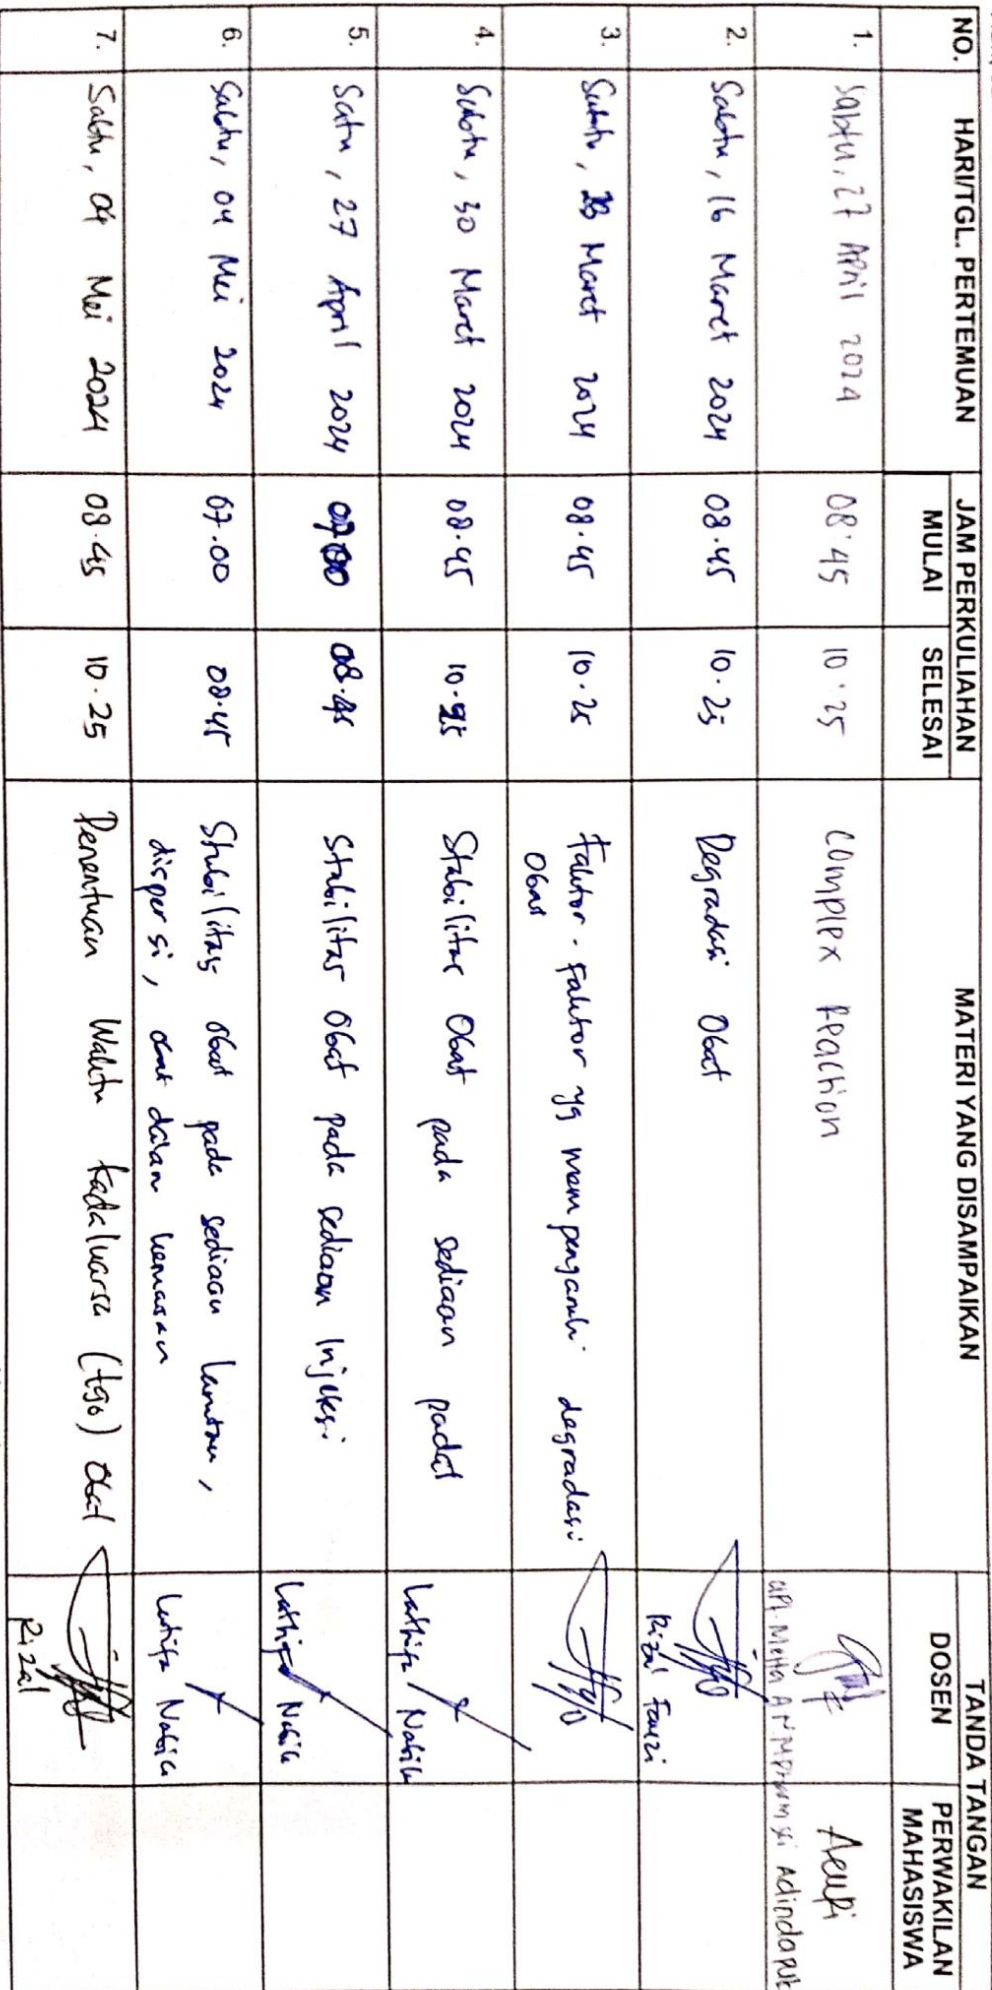 NO. HARI/TGL. PERTEMUAN JAM PERKULIAHAN MATERI YANG DISAMPAIKAN TANDA TANGAN
MULAI SELESAI DOSEN PERWAKILAN MAHASISWA
1. Sabtu, 27 April 2024 08.45 10.25 Complex Reaction
2. Sabtu, 16 Maret 2024 08.45 10.25 Degradasi Obat
Rizal Fauzi
3. Sabtu, 23 Maret 2024 08.45 10.25 Faktor-faktor yg mempengaruhi degradasi
Obat
4. Sabtu, 30 Maret 2024 08.45 10.25 Stabilitas Obat pada sediaan padat
Lathifa Nabila
5. Satu, 27 April 2024 07.00 08.45 Stabilitas Obat pada sediaan Injeksi
Lathifa Nabila
6. Sabtu, 04 Mei 2024 07.00 08.45 Stabilitas obat pada sediaan larutan,
dispersi, obat dalam kemasan
Nabila
7. Sabtu, 04 Mei 2024 08.45 10.25 Penentuan Waktu Kadaluarsa (t90) Obat
Rizal